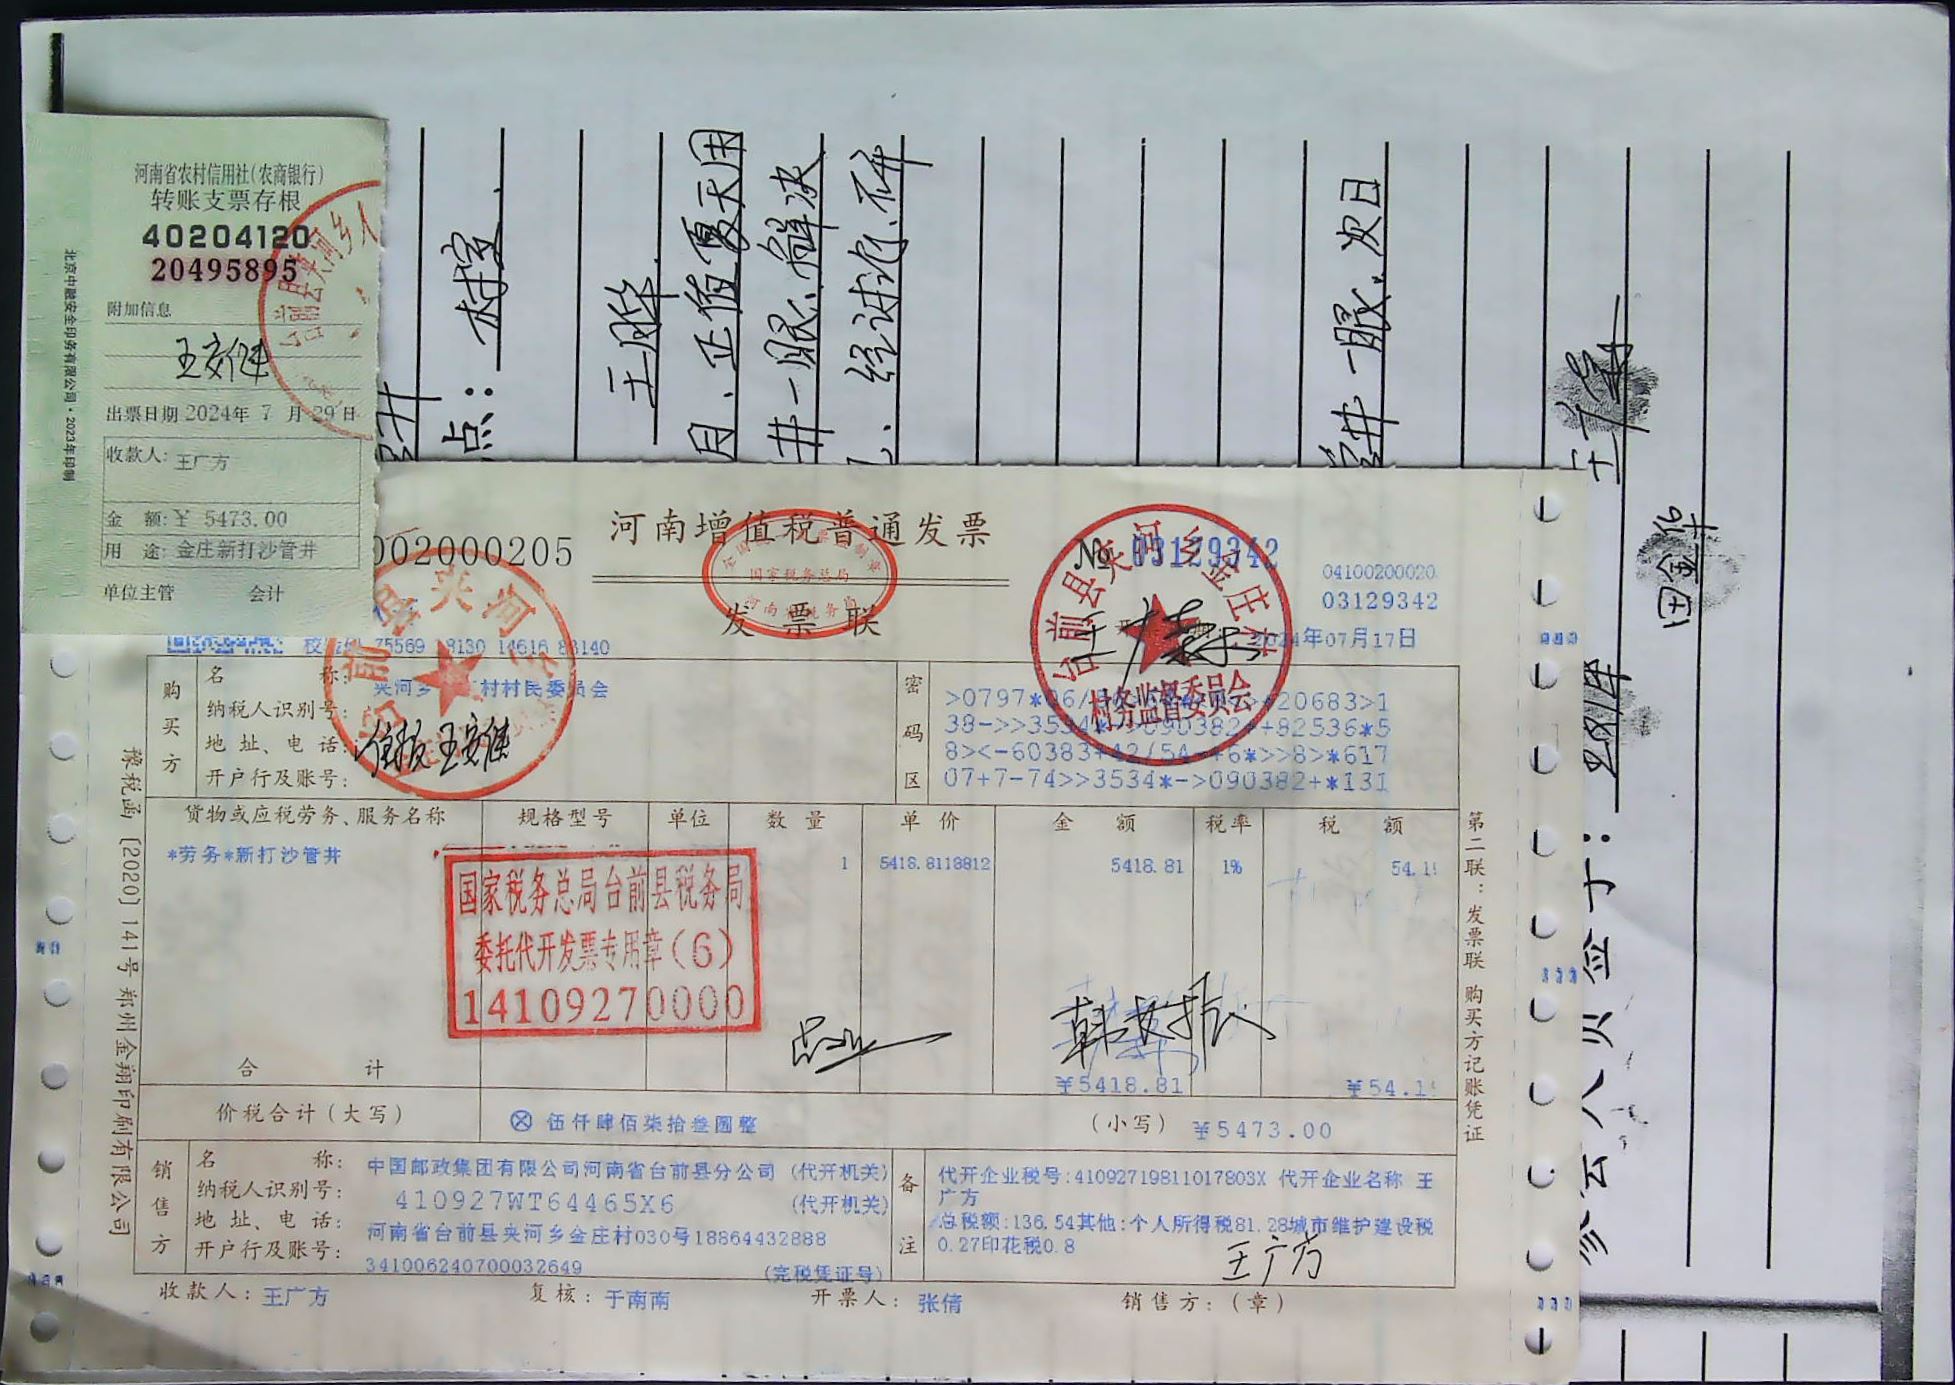 河南省农村信用社(农商银行)
转账支票存根
40204120
20495895
附加信息
王安健
出票日期 2024年 7 月 29日
收款人: 王广方
金 额:¥ 5473.00
用 途: 金庄新打沙管井
单位主管 会计
北京中融安全印务有限公司·2023年印制
点:村室
正值夏天用
井一眼、解决
经讨论、
井一眼、次日
参会人员签于:
田金华
002000205
河南增值税普通发票
发票联
国家税务总局
№ 03129342
0410020020
03129342
2024年07月17日
台前县夹河乡金庄村
村务监督委员会
14616 83140
购买方
名 称: 夹河乡 村村民委员会
纳税人识别号:
地 址、电 话:
开户行及账号:
王安健
密码区
38->>3534
8><-60383+42/54
07+7-74>>3534*->090382+*131
货物或应税劳务、服务名称 规格型号 单位 数 量 单 价 金 额 税率 税 额
*劳务*新打沙管井 1 5418.8118812 5418.81 1% 54.1
国家税务总局台前县税务局
委托代开发票专用章(6)
14109270000
合 计 ¥5418.81 ¥54.1
价税合计(大写) ⊗ 伍仟肆佰柒拾叁圆整 (小写) ¥5473.00
销售方
名 称: 中国邮政集团有限公司河南省台前县分公司 (代开机关)
纳税人识别号: 410927WT64465X6 (代开机关)
地 址、电 话: 河南省台前县夹河乡金庄村030号18864432888
开户行及账号: 341006240700032649 (完税凭证号)
备注
代开企业税号:41092719811017803X 代开企业名称 王
广方
总税额:136.54其他:个人所得税81.28城市维护建设税
0.27印花税0.8
王广方
收款人: 王广方 复核: 于南南 开票人: 张倩 销售方:(章)
第二联:发票联 购买方记账凭证
豫税函〔2020〕141号郑州金翔印刷有限公司